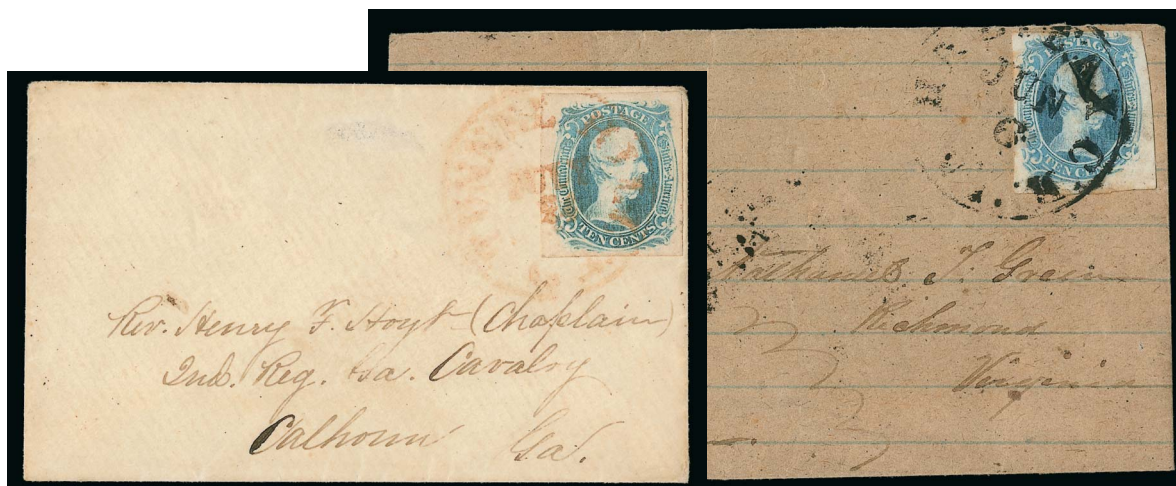 POSTAGE
The Confederate States of America
TEN CENTS
Rev. Henry F. Hoyt (Chaplain)
2nd. Reg. Ga. Cavalry
Calhoun
Ga.
POSTAGE
TEN CENTS
JUN
8
Nathaniel T. Green
Richmond
Virginia